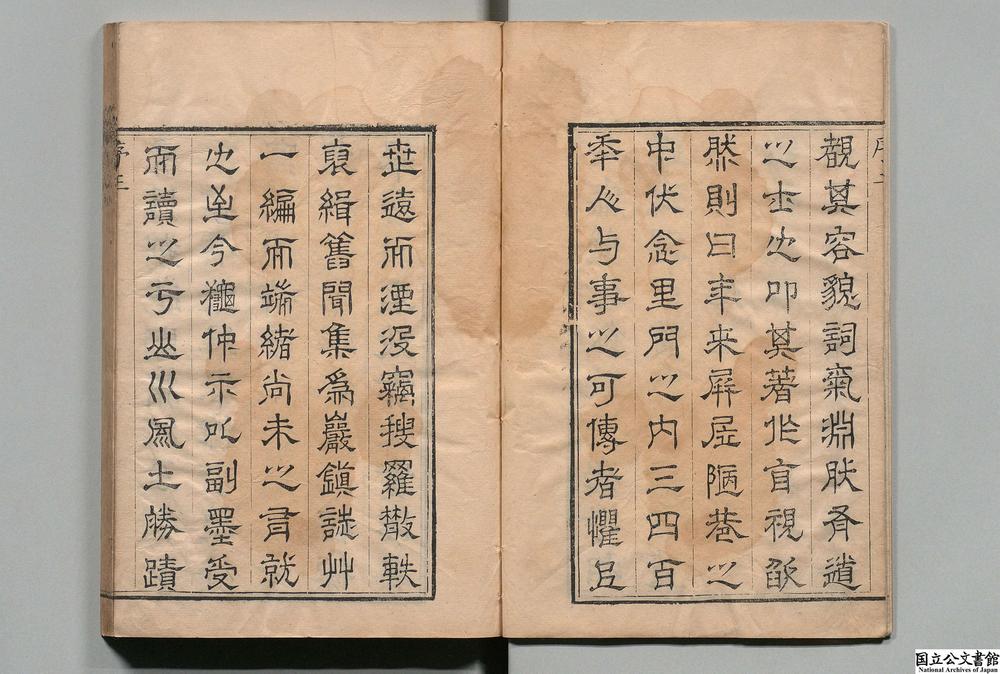 序二
觀其容貌詞氣淵肰有道
之士也叩其著作自視欿
肰則曰年来屏居陋巷之
中伏念里門之内三四百
年人与事之可傳者懼且
世遠而湮没竊搜羅散軼
裒緝舊聞集爲巖鎮誌艸
一編而端緒尚未之有就
也至今龝仲示以副墨受
而讀之亏山川風土勝蹟
序三
国立公文書館
National Archives of Japan